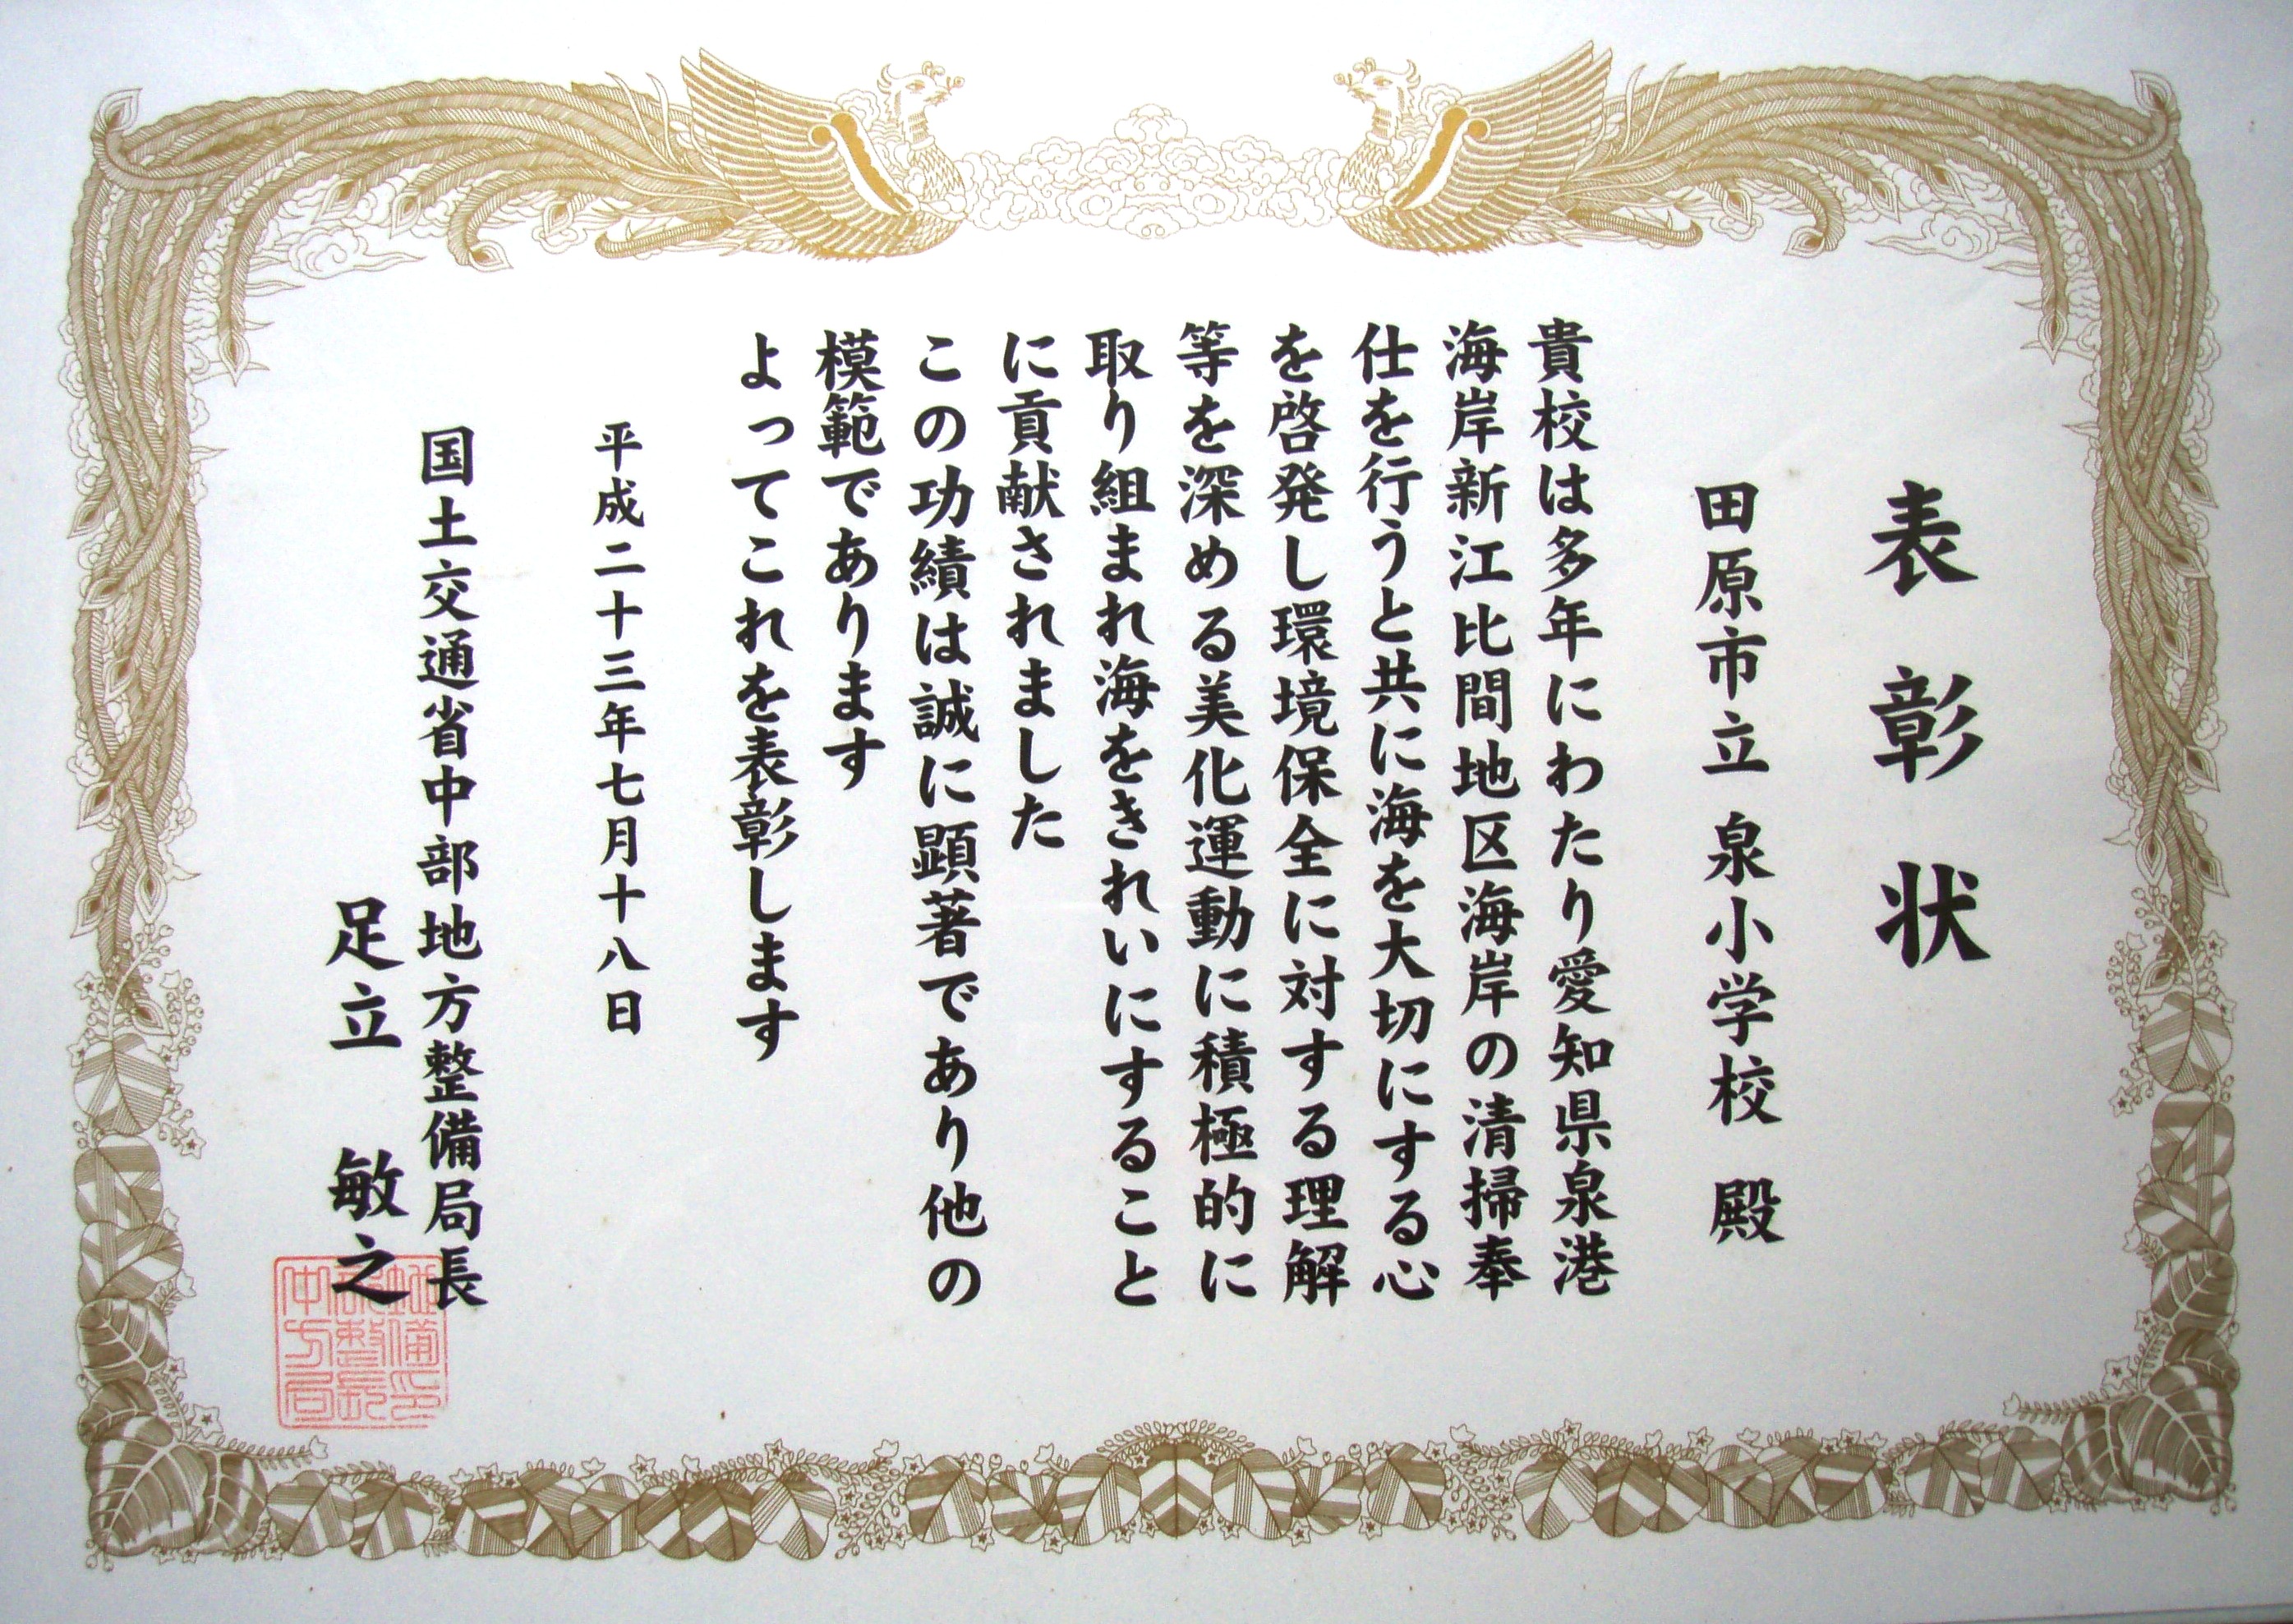 表彰状
田原市立泉小学校 殿
貴校は多年にわたり愛知県泉港
海岸新江比間地区海岸の清掃奉
仕を行うと共に海を大切にする心
を啓発し環境保全に対する理解
等を深める美化運動に積極的に
取り組まれ海をきれいにすること
に貢献されました
この功績は誠に顕著であり他の
模範であります
よってこれを表彰します
平成二十三年七月十八日
国土交通省中部地方整備局長
足立 敏之